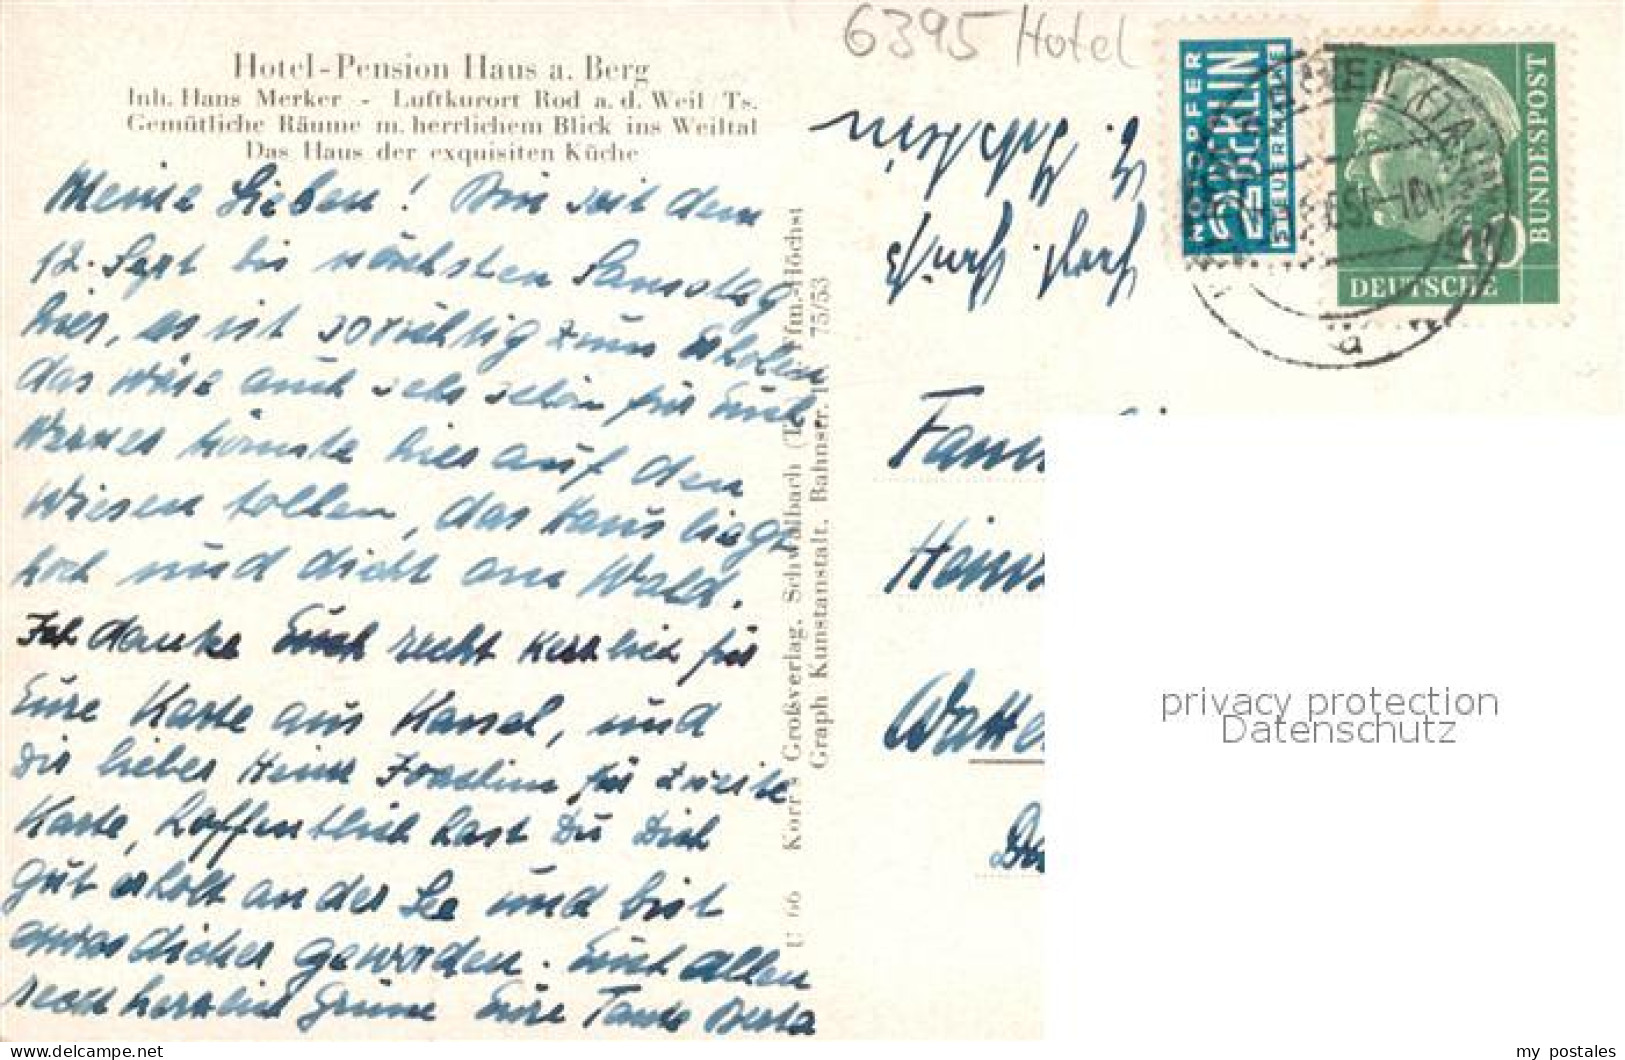 6395 Hotel
Hotel-Pension Haus a. Berg
Inh. Hans Merker - Luftkurort Rod a. d. Weil/Ts.
Gemütliche Räume m. herrlichem Blick ins Weiltal
Das Haus der exquisiten Küche
Meine Lieben! Bin seit dem
12. Sept bis nächsten Samstag
hier, es ist so richtig zum Erholen
das wäre auch sehr schön für Euch
Werner könnte hier auf den
Wiesen tollen, das Haus liegt
hoch und dicht am Wald.
Ich danke Euch recht herzlich für
Eure Karte aus Kassel, und
Dir lieber Heinz Joachim für zweite
Karte, hoffentlich hast Du Dich
gut erholt an der See und bist
etwas dicker geworden. Euch allen
recht herzliche Grüße Eure Tante Berta
U 66 Korr's Großverlag, Schwalbach (Ts.) Ffm.-Höchst
Graph Kunstanstalt, Bahnstr. 75/53
NOTOPFER
2 BERLIN
STEUERMARKE
WEIL (TAUNUS)
a
10
DEUTSCHE
BUNDESPOST
Fam
Heinr
Watten
privacy protection
Datenschutz
my postales
https://www.delcampe.net